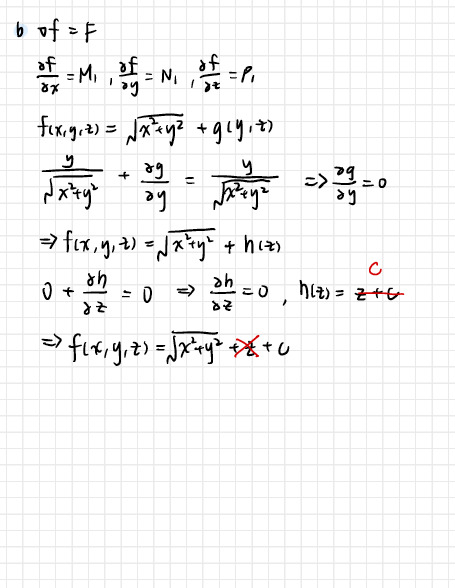 b ∇f = F
∂f/∂x = M, , ∂f/∂y = N, , ∂f/∂z = P,
f(x,y,z) = √(x²+y²) + g(y,z)
y/√(x²+y²) + ∂g/∂y = y/√(x²+y²) => ∂g/∂y = 0
=> f(x,y,z) = √(x²+y²) + h(z)
0 + ∂h/∂z = 0 => ∂h/∂z = 0 , h(z) = ~~z+c~~ C
=> f(x,y,z) = √(x²+y²) ~~+z~~ + c